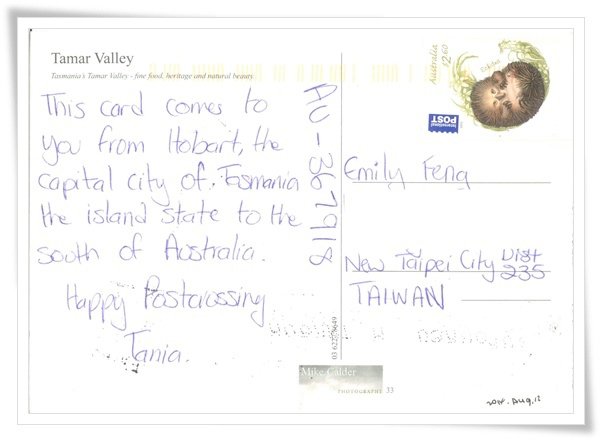 Tamar Valley
Tasmania's Tamar Valley - fine food, heritage and natural beauty.
This card comes to
you from Hobart, the
capital city of Tasmania
the island state to the
south of Australia.
Happy Postcrossing
Tania.
AU-367918
Australia
$2.60
Echidna
International
POST
Emily Feng
New Taipei City Dist
235
TAIWAN
Mike Calder
PHOTOGRAPHY 33
2014. Aug. 12